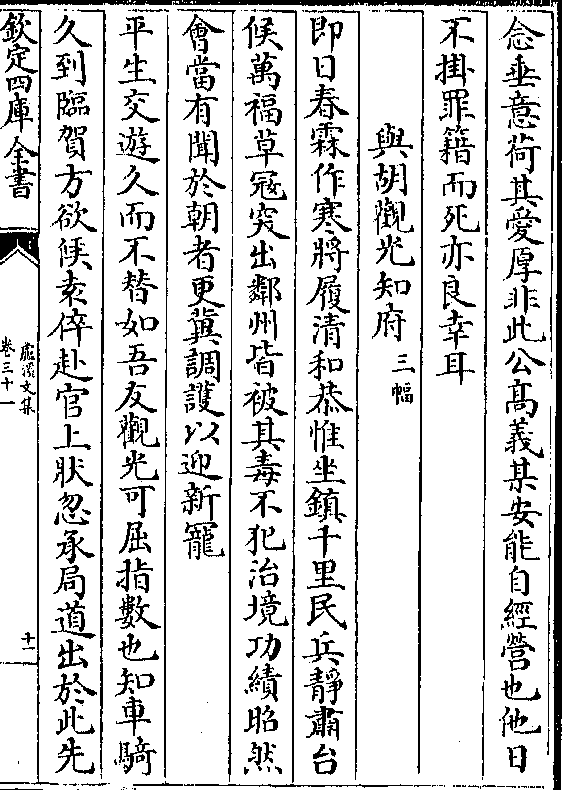 念垂意荷其愛厚非此公高義某安能自經營也他日
不掛罪籍而死亦良幸耳
與胡觀光知府三幅
即日春霖作寒將履清和恭惟坐鎮千里民兵靜肅台
候萬福草冦突出鄰州皆被其毒不犯治境功績昭然
會當有聞於朝者更冀調護以迎新寵
平生交遊久而不替如吾友觀光可屈指數也知車騎
久到臨賀方欲候泰倅赴官上狀忽承局道出於此先
欽定四庫全書
盧溪文集
卷三十一
十一